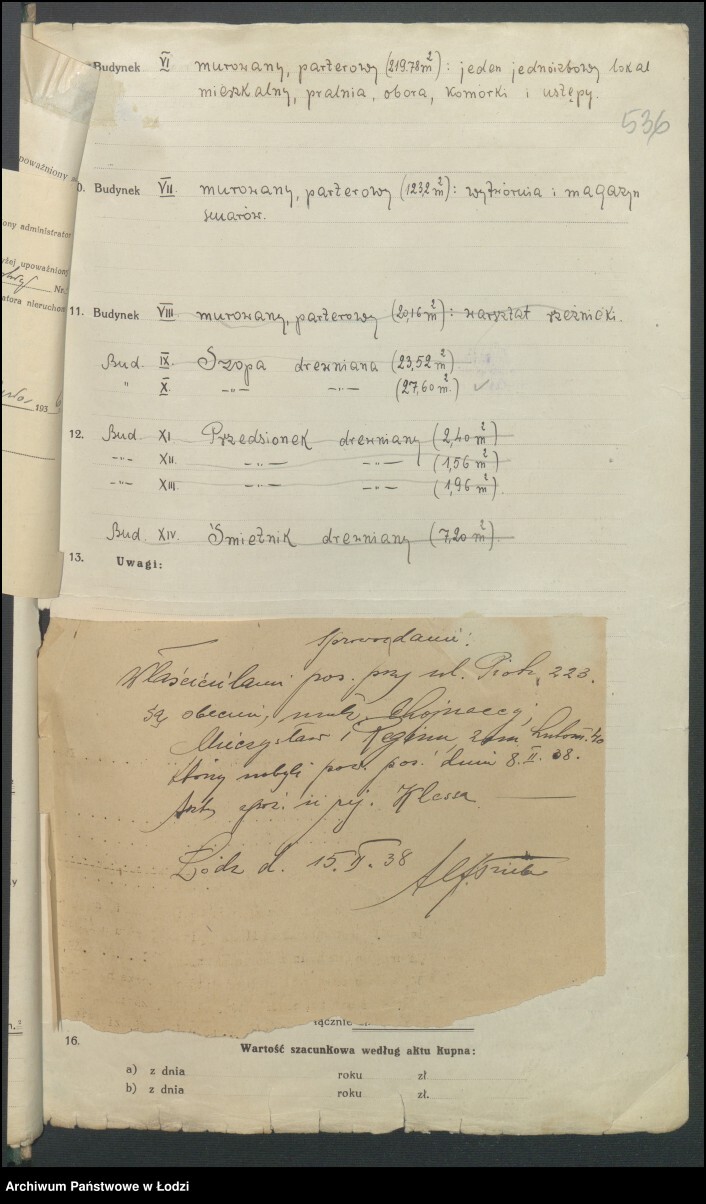 536
Budynek VI murowany, parterowy (219.78 m²): jeden jednoizbowy lokal
mieszkalny, pralnia, obora, komórki i ustępy.
poważniony
0. Budynek VII. murowany, parterowy (123,2 m²): wytwórnia i magazyn
smarów.
ony administrator
yżej upoważniony
Nr.
atora nieruchom
11. Budynek VIII murowany, parterowy (20,16 m²): warsztat rzeźnicki.
Bud. IX. Szopa drewniana (23,52 m²)
" X. -"- -"- (27,60 m²)
193
12. Bud. XI Przedsionek drewniany (2,40 m²)
-"- XII. -"- -"- (1,56 m²)
-"- XIII. -"- -"- (1,96 m²)
Bud. XIV. Śmietnik drewniany (7,20 m²)
13. Uwagi:
Sprawozdanie:
Właścicielami pos. przy ul. Piotrk. 223.
są obecnie, małż. Chojnaccy;
Mieczysław i Regina zam. Lutom. 40
którzy nabyli pow. pos. dnia 8.II.38.
Akt not. Klessa
Łódź d. 15.II.38
łącznie
16. Wartość szacunkowa według aktu kupna:
a) z dnia roku zł
b) z dnia roku zł.
Archiwum Państwowe w Łodzi